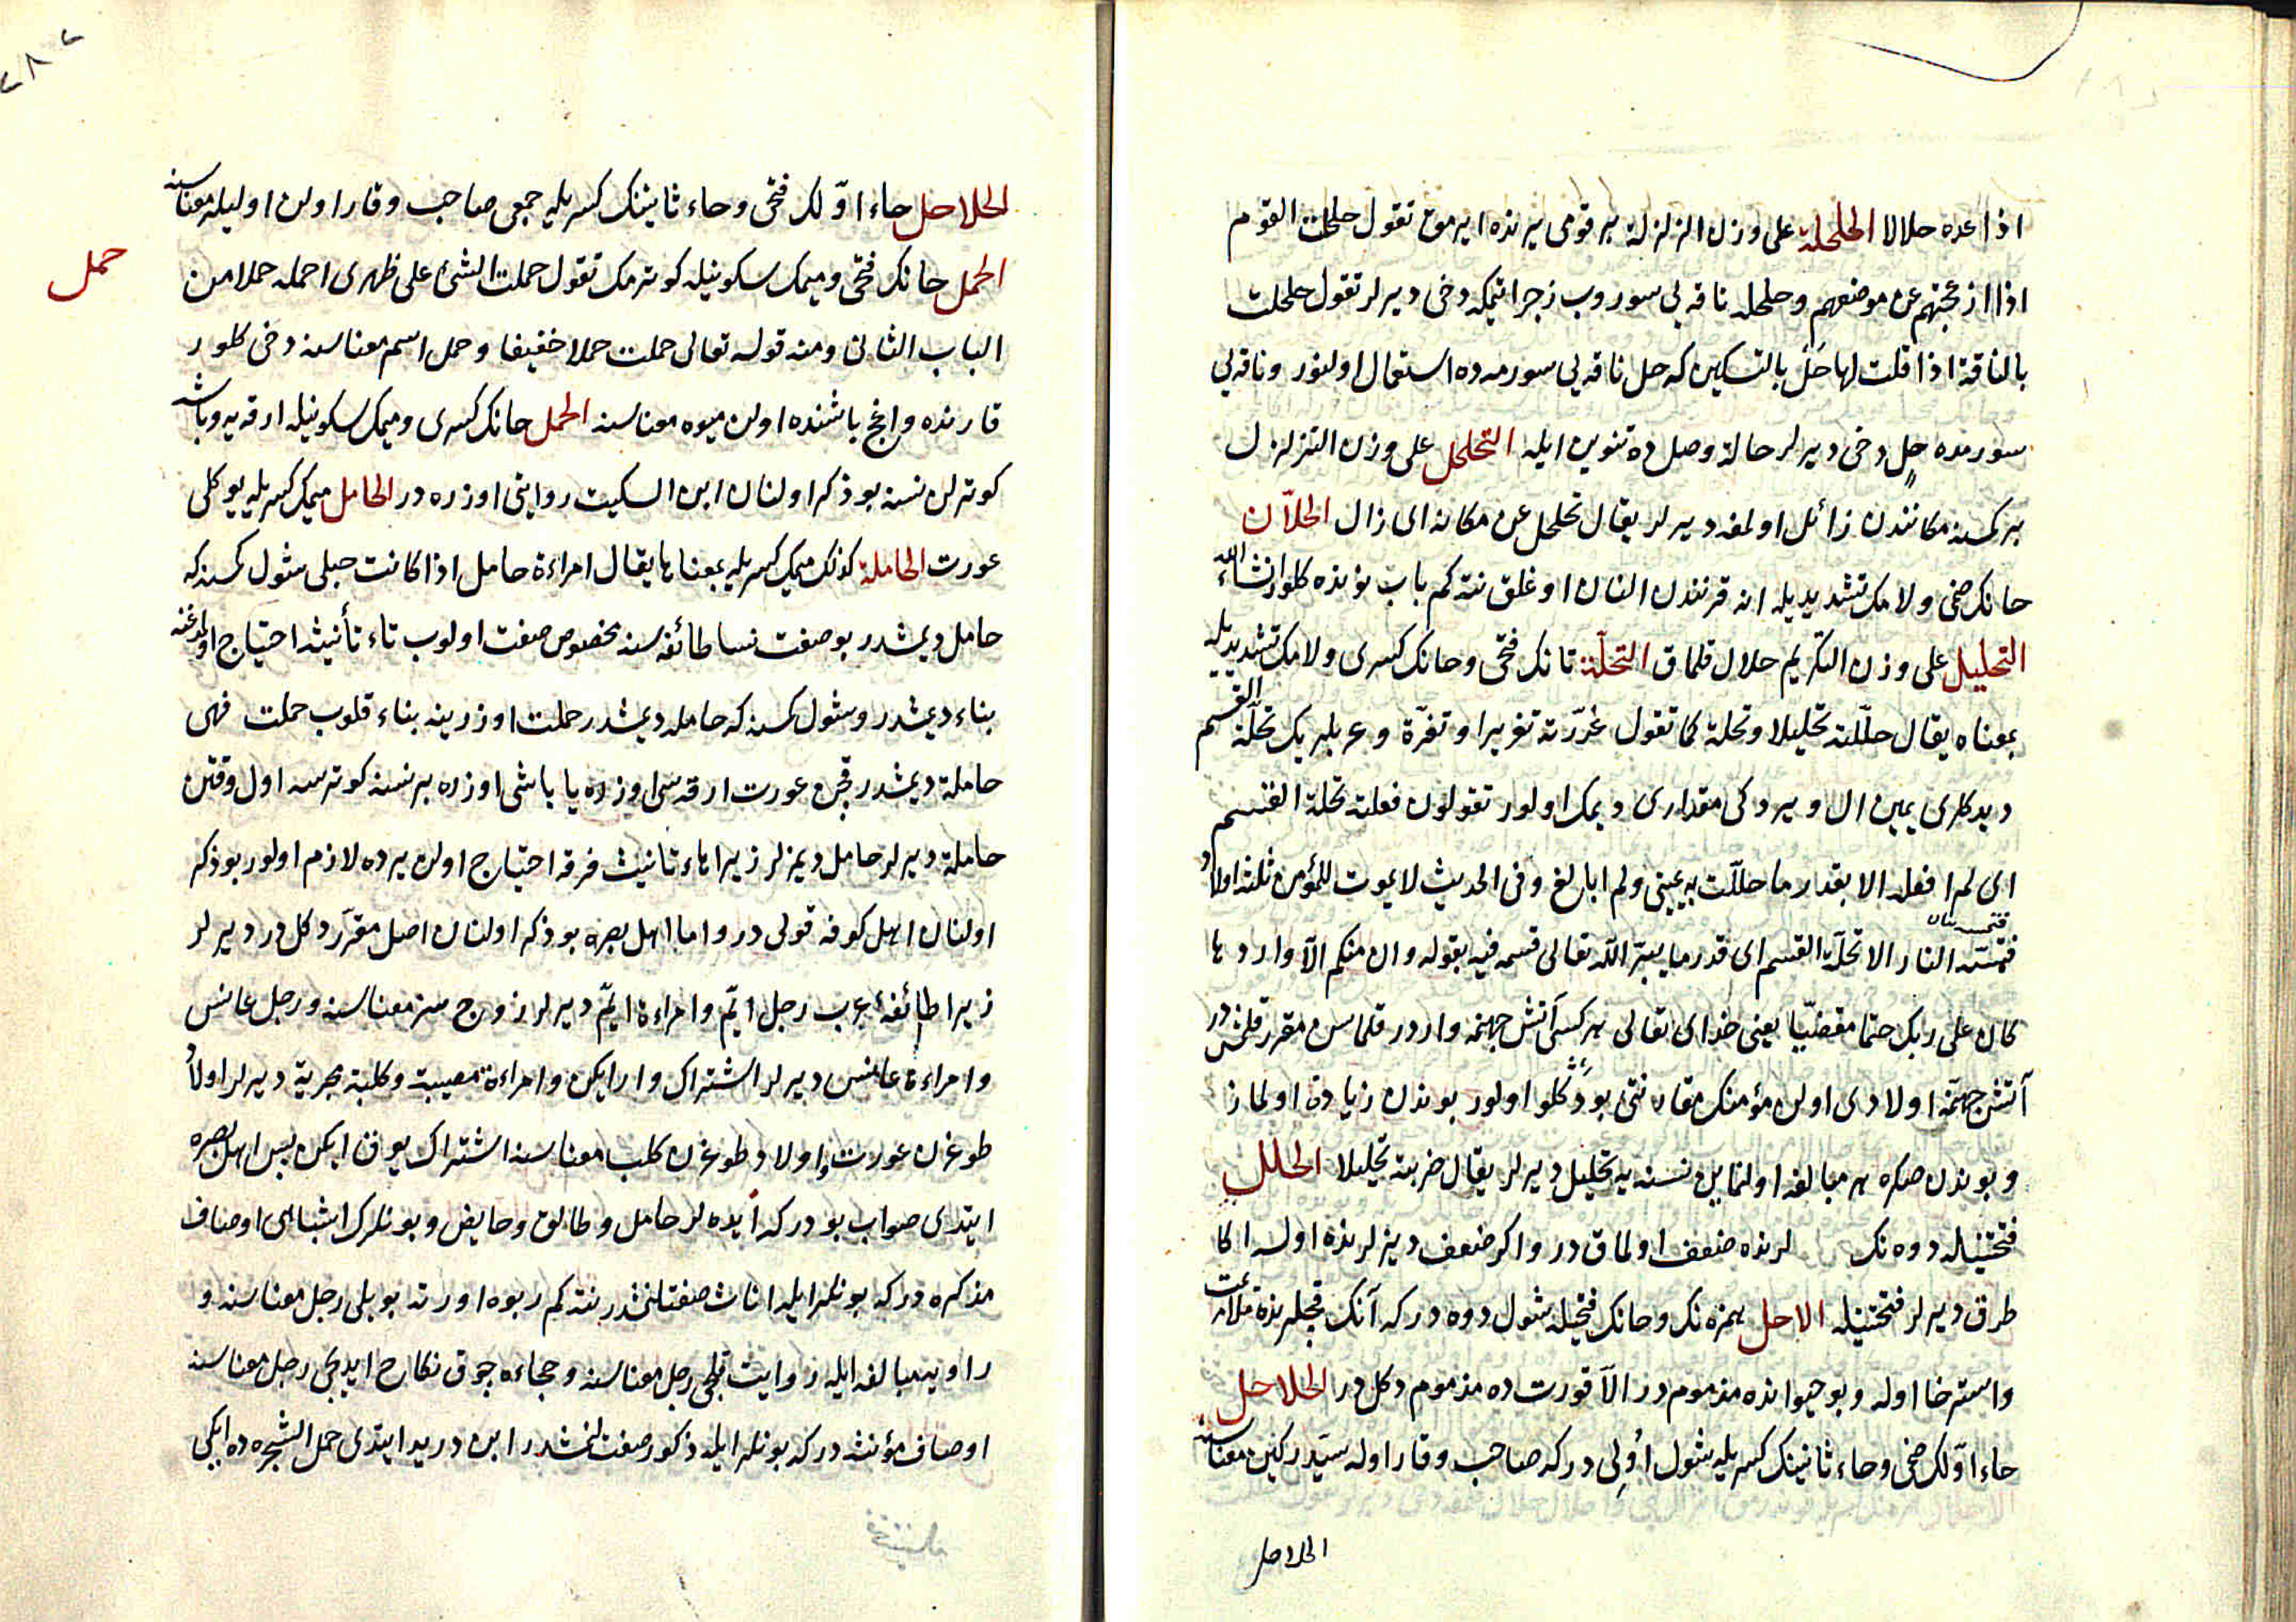 اذا عده حلالا الحلحلة على وزن الزلزلة بر قومى يرنده ايرمق تقول حلحلت القوم
اذا ازعجتهم عن موضعهم وحلحله ناقه يى سوروب زجر اتمكه دخى ديرلر تقول حلحلت
بالناقة اذا قلت لها حل بالتسكين كه حل ناقه يى سورمه ده استعمال اولنور و ناقه يى
سورمده حل دخى ديرلر حالة وصل ده تنوين ايله التحلحل على وزن التزلزل
بر كمسنه مكانندن زائل اولمغه ديرلر يقال تحلحل عن مكانه اى زال الحلّان
حانك ضمى ولامك تشديديله انه قرنندن النان اوغلق نته كم باب نونده كلور انشاء الله
التحليل على وزن التكريم حلال قلماق التحلّة تانك فتحى وحانك كسرى ولامك تشديديله
بمعناه يقال حلّلته تحليلا وتحلة كما تقول غرّرته تغريرا وتغرّة وعربلريك تحلّة القسم
ديدكلرى يمين ال ويردكى مقدارى ديمك اولور تقولون فعلته تحلة القسم
اى لم افعله الا بقدر ما حلّلت به يمينى ولم ابالغ وفى الحديث لا يموت للمؤمن ثلثة اولاد
فتمسّه النار الا تحلّة القسم اى قدر ما يبرّ الله تعالى قسمه فيه بقوله وان منكم الّا واردها
كان على ربك حتما مقضيّا يعنى خداى تعالى هر كسى آتش جهنمه واردر قلماسن مقرر قلمشدر
آتش جهنمه اولادى اولن مؤمنك مقارنتى بو دكلو اولور بوندن زياده اولماز
وبوندن صكره هر مبالغه اولنماين نسنه يه تحليل ديرلر يقال ضربته تحليلا الحلل
فتحتينله دوه نك لرنده ضعف اولماق در واكر ضعف ديزلرنده اولسه اكا
طرق ديرلر فتحتينله الاحل همزه نك وحانك فتحيله شول دوه در كه آنك قچلرنده
واسترخا اوله وبو حيوانده مذموم در الّا قورت ده مذموم دكل در الحلاحل
حاء اوّلك ضمى وحاء ثانينك كسريله شول اولى در كه صاحب وقار اوله سيّد ركين معناسنه
الحلاحل
الحلاحل حاء اوّلك فتحى وحاء ثانينك كسريله جمعى صاحب وقار اولن اوليلر معناسنه
حمل
الحمل حانك فتحى وميمك سكونيله كوترمك تقول حملت الشئ على ظهرى احمله حملا من
الباب الثانى ومنه قوله تعالى حملت حملا خفيفا وحمل اسم معناسنه دخى كلور
قارنده واغج باشنده اولن ميوه معناسنه الحمل حانك كسرى وميمك سكونيله ارقه يه وباشه
كوترلن نسنه بو ذكر اولنان ابن السكيت روايتى اوزره در الحامل ميمك كسريله يوكلى
عورت الحاملة كذلك ميمك كسريله بمعناها يقال امراءة حامل اذا كانت حبلى شول كمسنه كه
حامل ديمشدر بو صفت نسا طائفه سنه مخصوص صفت اولوب تاء تأنيثه احتياج اولمدغنه
بناء ديمشدر وشول كمسنه كه حامله ديمشدر حملت اوزرينه بناء قلوب حملت فهى
حاملة ديمشدر قچن عورت ارقه سى اوزره يا باشى اوزره بر نسنه كوترسه اول وقتن
حاملة ديرلر حامل ديمزلر زيرا هاء تانيث فرقه احتياج اولن يرده لازم اولور بو ذكر
اولنان اهل كوفه قولى در واما اهل بصره بو ذكر اولنان اصل مقرّر دكل در ديرلر
زيرا طائفهٔ عرب رجل ايّم وامراءة ايّم ديرلر زوج سز معناسنه ورجل عانس
وامراءة عانس ديرلر اشتراك وار ايكن وامراءة مصيبة وكلبة مجرية ديرلر اولاد
طوغرن عورت واولاد طوغرن كلب معناسنه اشتراك يوق ايكن پس اهل بصره
ايتدى صواب بودر كه ايده لر حامل وطالق وحايض وبونلرك اشباهى اوصاف
مذكره در كه بونلر ايله اناث صفتلنمشدر نته كم ربوه اورته بويلى رجل معناسنه و
راويه مبالغه ايله روايت قلجى رجل معناسنه وحجاءه چوق نكاح ايديجى رجل معناسنه
اوصاف مؤنثه در كه بونلر ايله ذكور صفتلنمشدر ابن دريد ايتدى حمل الشجره ده ايكى